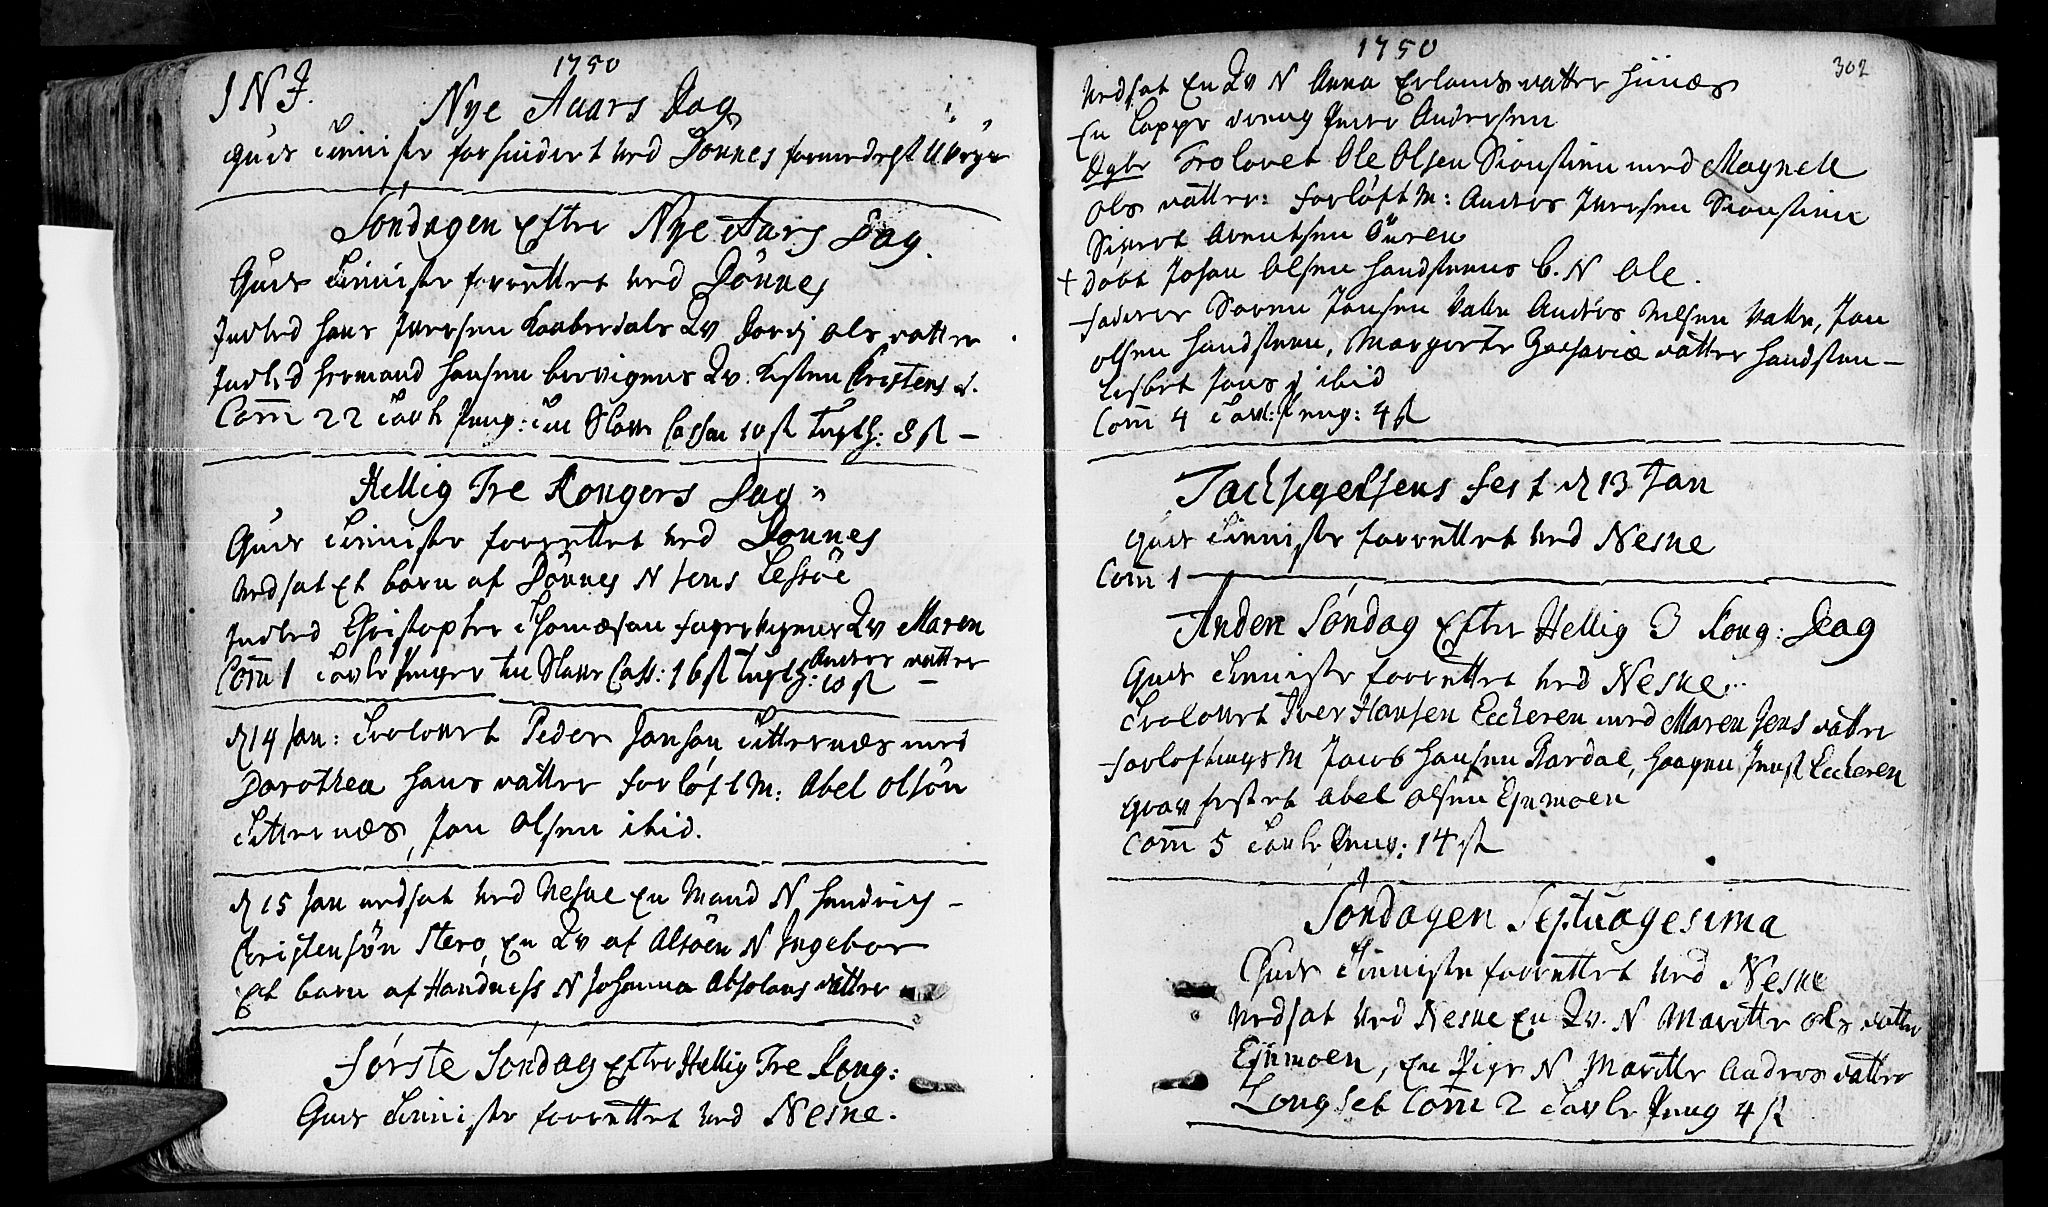 1750
I N J.
Nye Aaars Dag
Guds Tienniste forhindert ved Dönnes formedelst U Veyer
Söndagen Efter Nye Aars Dag.
Guds Tienniste forrettet ved Dönnes
Indled Hans Iversen Kaaberdals Qv Dordj Ols datter
Indled Hermand Hansen Qv. Kisten Christens d.
Com 22 Tavle Peng: til Slave Cassen 10 st Tugth: 8 st –
Hellig Tre Kongers Dag
Guds Tienniste forrettet ved Dönnes
Nedsat Et barn af Dönnes N Jens
Indled Christopher Thomæsøn Qv Maren
Anders datter
Com 1 Tavle Penger til Slave Cass: 16 st Tugth: 10 st –
d 14 Jan: Trolovet Peder Jonsøn Titternæs med
Dorothea Hans datter forlöft M: Abel Olsön
Titternæs, Jon Olsen ibid.
d 15 Jan nedsat ved Nesne En Mand N Hendrich
Christensön Stero, En Qv af Alsöen N Ingebor
Et barn af Handness N Johanna Absolons datter
Förste Söndag Efter Hellig Tre Kong:
Guds Tienniste forrettet ved Nesne.
1750
302
Nedsat En Qv N Anna Erlands datter Hunæs
En Lappe dreng Peder Andersen
Trolovet Ole Olsen med Magnell
Ols datter: forlöft M: Anders Iversen
Siurt Arentsen
+ Döbt Johan Olsen Handsteens b. N Ole.
Fadere Soren Jonsen Anders Nelsen Jon
Olsen Handsteen, Margrete Zacharie datter Handsteen –
Lisbet Jons d ibid
Com 4 Tavl: Peng: 4 st
Tachsigelsens Fest d 13 Jan
Guds Tienniste forrettet ved Nesne
Com 1
Anden Söndag Efter Hellig 3 Kong: Dag
Guds Tienniste forrettet ved Nesne.
Trolovet Iver Hansen Eckeren med Maren Jens datter
Forloftnings M Jacob Hansen Bardal, Haagen Eckeren
grav festet Abel Olsen Ejnmoen
Com 5 Tavle Peng: 14 st
Söndagen Septuagesima
Guds Tienniste forrettet ved Nesne
Nedsat ved Nesne En Qv. N Maritte Ols datter
Ejnmoen, En Pige N Maritte Andres datter
Longset Com 2 Tavle Peng 4 st